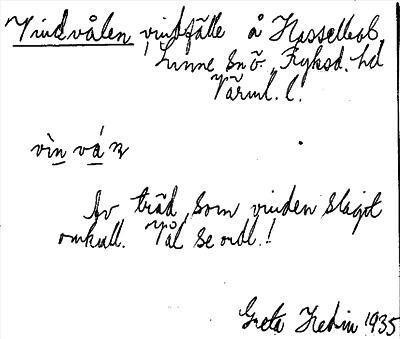 Vindvålen vindfälle å Hasselbol,
Linne, S nö. Fryksd. hd
Värml. l.
vìn vá n
Av träd, som vinden slagit
omkull. Vål se ordl.!
Greta Hedin 1935